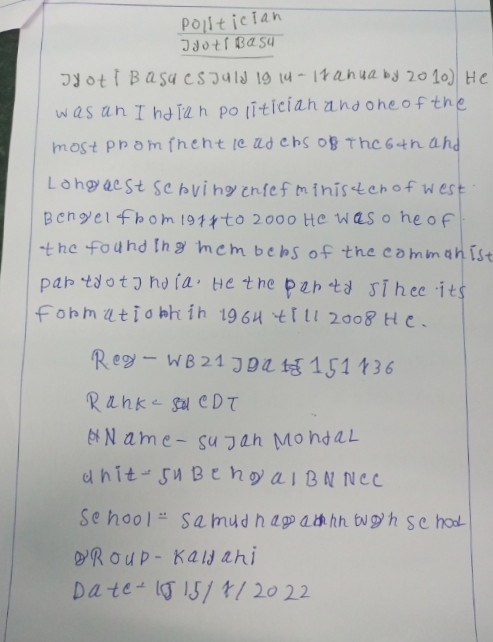 Politician
Jyoti Basu
Jyoti Basu (8 July 1914 - 17 Januaby 2010) He
was an Indian politician and one of the
most prominent leadebs of the 6th and
Longest sebving chief minister of west
Bengel fbom 1977 to 2000 He was one of
the founding membebs of the commanist
pabty of India. He the pabty since its
fobmation in 1964 till 2008 He.
Reg - WB21 JDA 151736
Rank - CDT
Name - Sujan Mondal
unit - 5u Bengal BN Ncc
School = high school
gRoup - Kalyani
Date - 15/7/2022